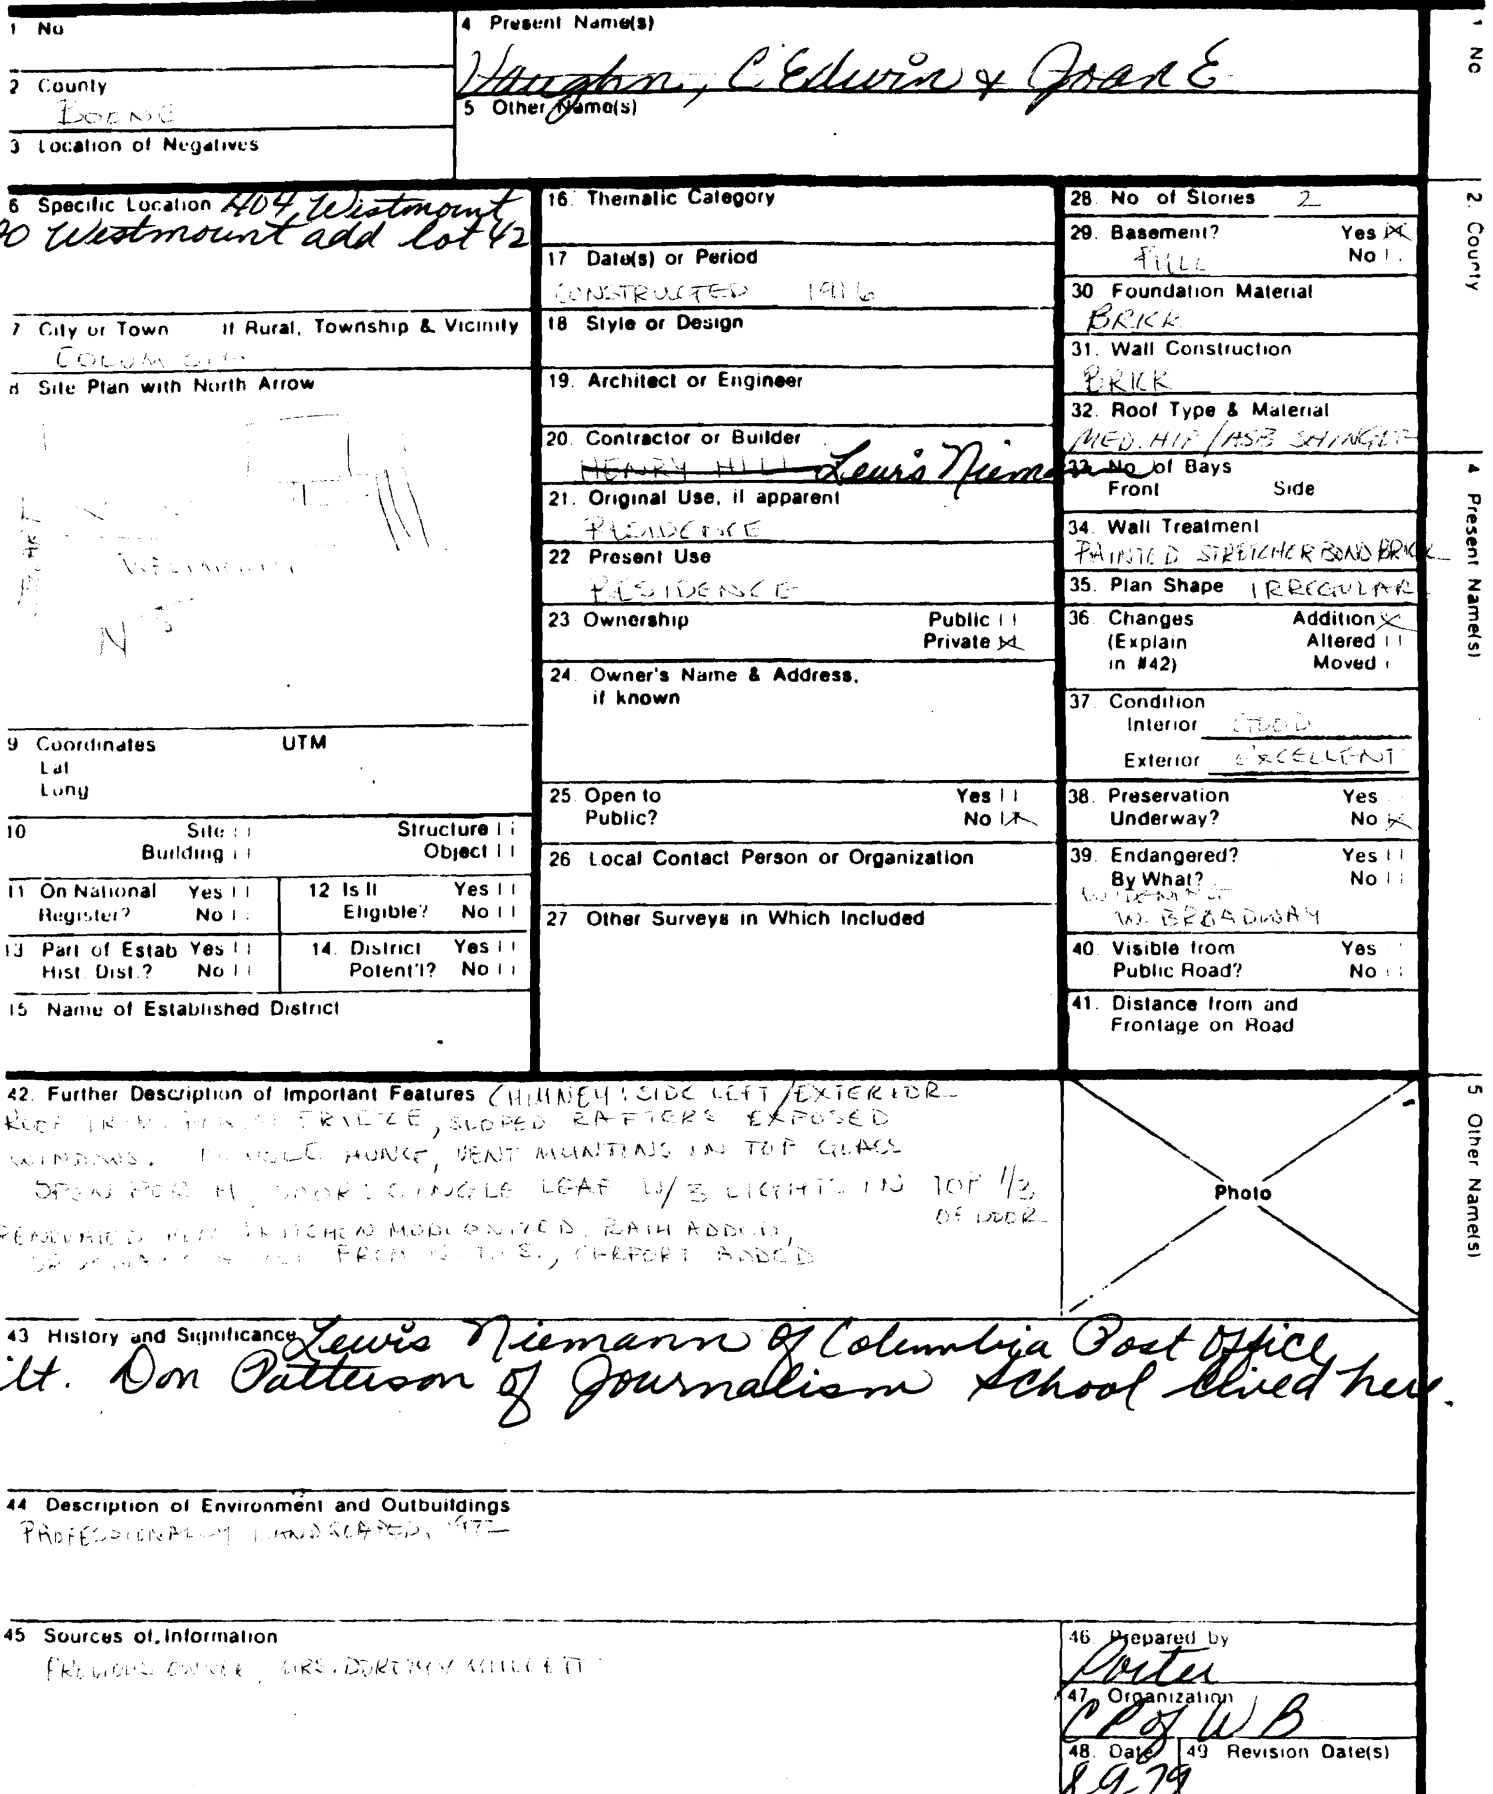 1 No
4 Present Name(s)
Vaughn, C Edwin & Joan E
2 County
BOONE
5 Other Name(s)
3 Location of Negatives
6 Specific Location 404 Westmount
Westmount add lot 42
7 City or Town If Rural, Township & Vicinity
COLUMBIA
8 Site Plan with North Arrow
WESTMOUNT
N
9 Coordinates UTM
Lat
Long
10 Site Structure
Building Object
11 On National Register? Yes No
12 Is It Eligible? Yes No
13 Part of Estab Hist. Dist.? Yes No
14. District Potent'l? Yes No
15 Name of Established District
16. Thematic Category
17 Date(s) or Period
CONSTRUCTED 1916
18 Style or Design
19. Architect or Engineer
20. Contractor or Builder
HENRY HILL Lewis Niemann
21. Original Use, if apparent
RESIDENCE
22 Present Use
RESIDENCE
23 Ownership Public
Private X
24. Owner's Name & Address,
if known
25. Open to Yes
Public? No X
26 Local Contact Person or Organization
27 Other Surveys in Which Included
28. No of Stories 2
29. Basement? Yes X
FULL No
30 Foundation Material
BRICK
31. Wall Construction
BRICK
32. Roof Type & Material
MED. HIP / ASB SHINGLE
33 No of Bays
Front Side
34. Wall Treatment
PAINTED STRETCHER BOND BRICK
35. Plan Shape IRREGULAR
36. Changes Addition X
(Explain Altered
in #42) Moved
37. Condition
Interior GOOD
Exterior EXCELLENT
38. Preservation Yes
Underway? No X
39. Endangered? Yes
By What? No
WIDENING
W. BROADWAY
40. Visible from Yes
Public Road? No
41. Distance from and
Frontage on Road
42. Further Description of Important Features CHIMNEY: SIDE LEFT/EXTERIOR
ROOF TRIM: FRIEZE, SLOPED RAFTERS EXPOSED
WINDOWS. HUNG, VENT MUNTINS IN TOP GLASS
OPEN PORCH, DOOR: SINGLE LEAF W/3 LIGHTS IN TOP 1/3
OF DOOR
RENOVATED KITCHEN MODERNIZED, BATH ADDED,
FROM N. TO S., CARPORT ADDED
Photo
43 History and Significance Lewis Niemann of Columbia Post Office
ilt. Don Patterson of Journalism School lived here.
44 Description of Environment and Outbuildings
PROFESSIONALLY LANDSCAPED,
45 Sources of Information
PREVIOUS OWNER, MRS. DOROTHY
46. Prepared by
Porter
47 Organization
CP of WB
48. Date 49 Revision Date(s)
8-9-79
1 No
2. County
4 Present Name(s)
5 Other Name(s)